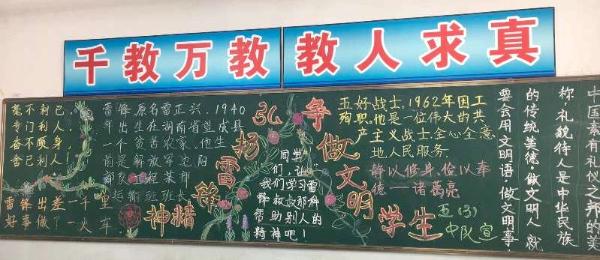 千教万教 教人求真
毫不利己
专门利人
奋不顾身
舍己利人!
雷锋出差一千里
好事做了一火车
雷锋原名雷正兴,1940
年出生在湖南省望城县
一个贫苦农家,他生
前是解放军
班班长
弘扬雷锋精神
同学
们,让
我们学习雷
锋叔叔那种
帮助别人的
精神吧!
争做文明学生
共产主义战士,1962年因工
殉职,他是一位伟大的共
产主义战士全心全意
地人民服务.
静以修身,俭以奉
德——诸葛亮
五(3)
中队宣
中国素有礼仪之邦的美
称,礼貌待人是中华民族
的传统美德,做文明人就
要会用文明语,做文明事.